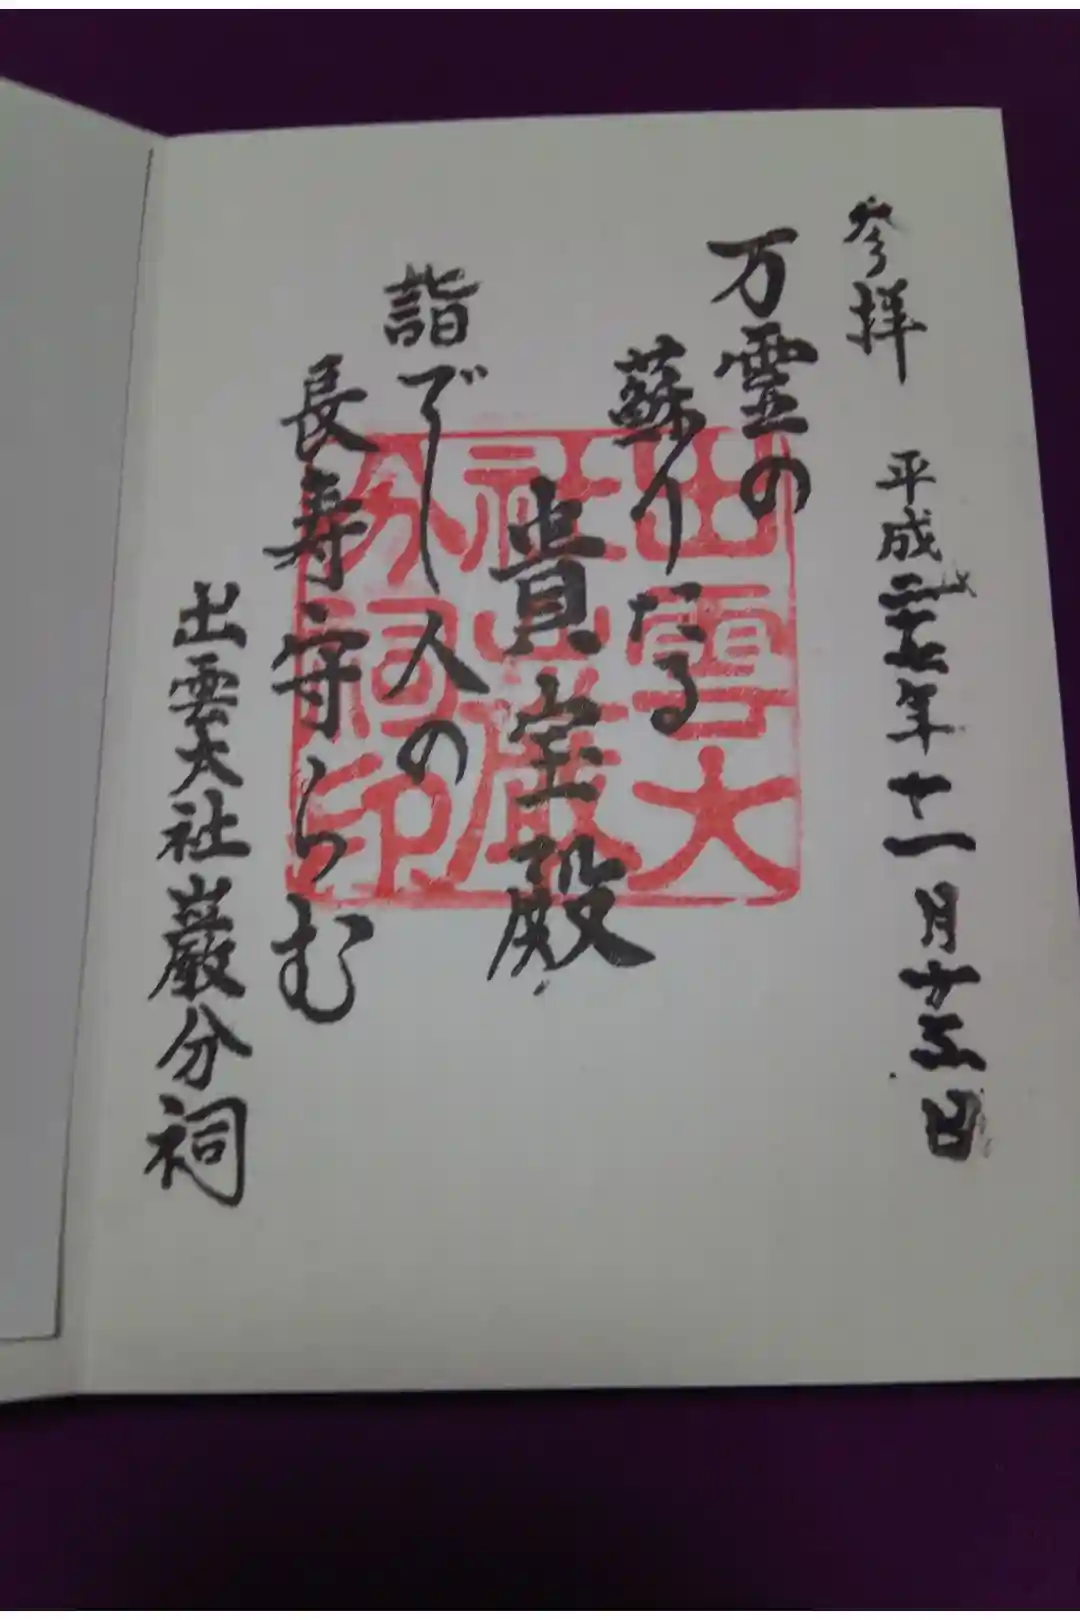 参拝 平成二十七年十一月十三日
万霊の
蘇りたる
貴宝殿
詣でし人の
長寿守らむ
出雲大社巌分祠
出雲大
社巌
分祠印